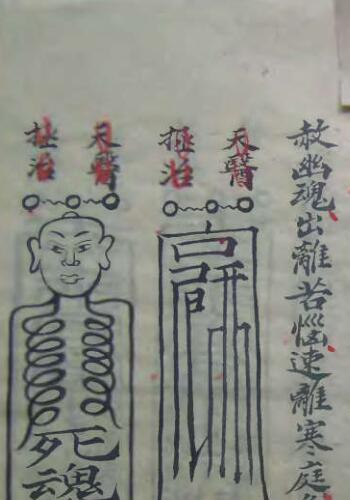 赦幽魂出離苦惱速離寒庭
天醫
拯治
天醫
拯治
死
魂